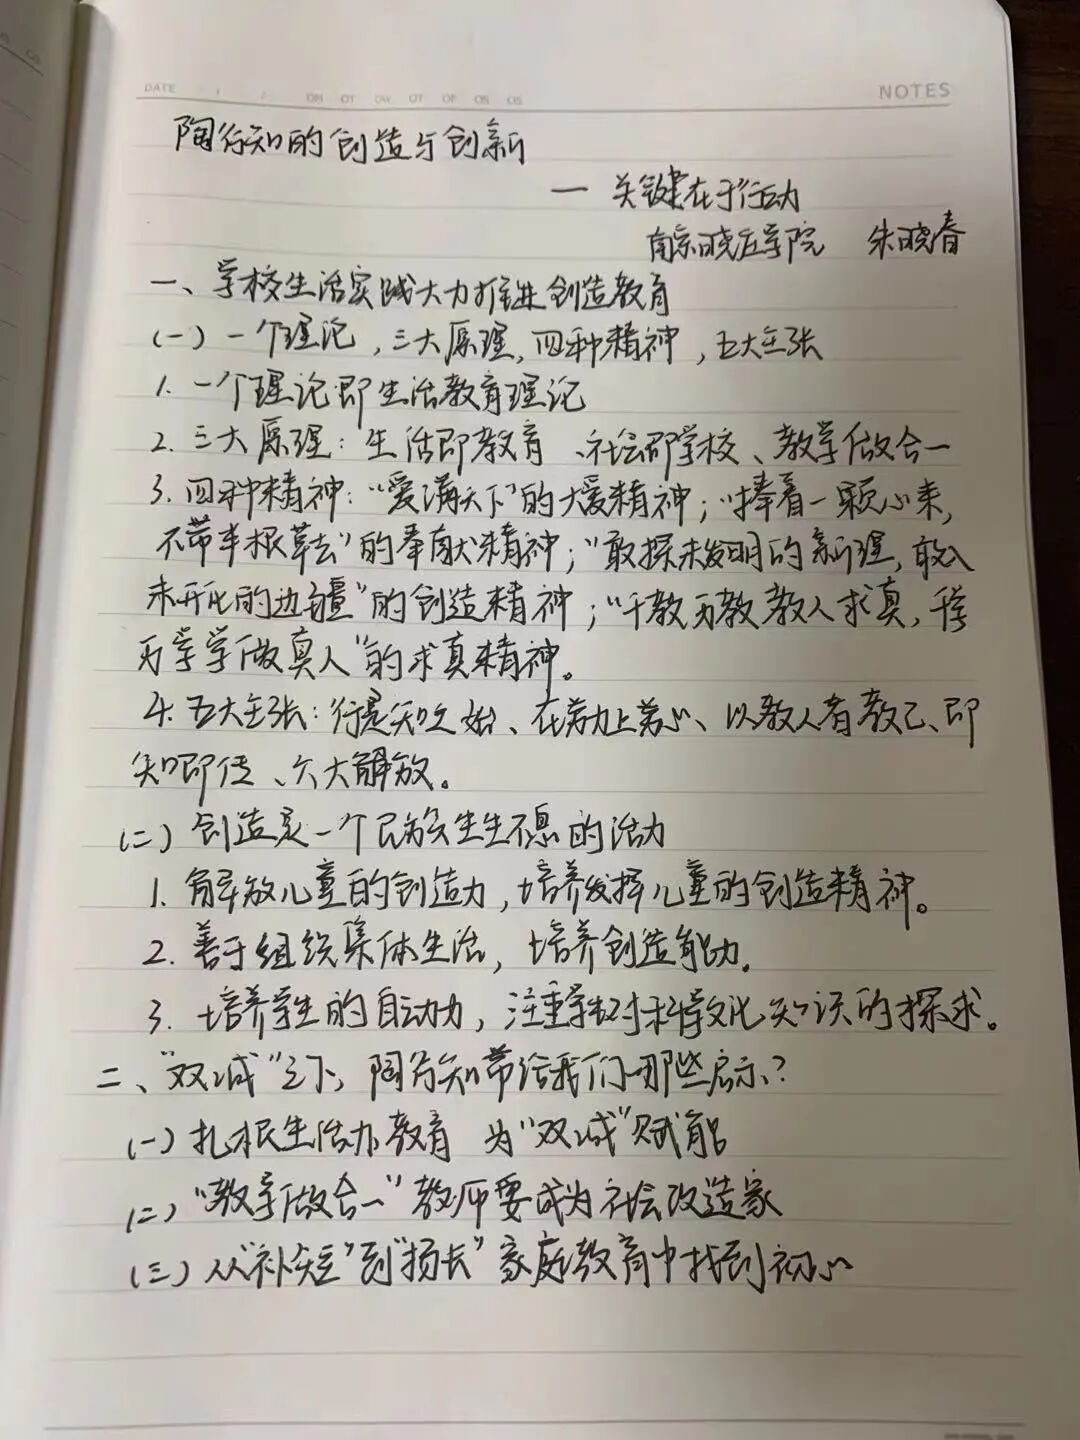 DATE / /
NOTES
陶行知的创造与创新
— 关键在于行动
南京晓庄学院 朱晓春
一、学校生活实践大力推进创造教育
(一)一个理论,三大原理,四种精神,五大主张
1. 一个理论即生活教育理论
2. 三大原理:生活即教育、社会即学校、教学做合一
3. 四种精神:“爱满天下”的大爱精神;“捧着一颗心来,
不带半根草去”的奉献精神;“敢探未发明的新理,敢入
未开化的边疆”的创造精神;“千教万教教人求真,千学
万学学做真人”的求真精神。
4. 五大主张:行是知之始、在劳力上劳心、以教人者教己、即
知即传、六大解放。
(二)创造是一个民族生生不息的活力
1. 解放儿童的创造力,培养发挥儿童的创造精神。
2. 善于组织集体生活,培养创造能力。
3. 培养学生的自动力,注重学生对科学文化知识的探求。
二、“双减”之下,陶行知带给我们哪些启示?
(一)扎根生活办教育 为“双减”赋能
(二)“教学做合一”教师要成为社会改造家
(三)从“补短”到“扬长”家庭教育中找到初心